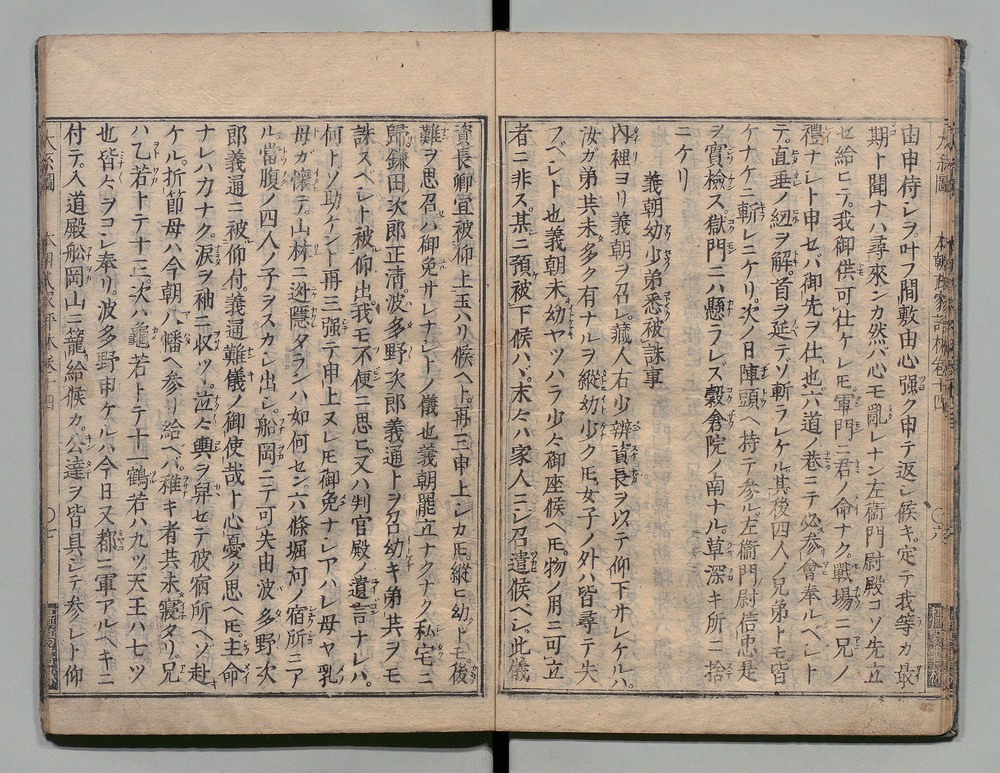 由申侍シヲ叶フ間敷由心强ク申テ返シ候キ定テ我等カ最
期ト聞ナハ尋來ンカ然バ心モ亂レナン左衞門尉殿コソ先立
セ給ヒテ我御供可仕ケレ𪜈軍門ニ君ノ命ナク戰場ニ兄ノ
禮ナシト申セバ御先ヲ仕也六道ノ巷ニテ必參會奉ルヘシト
テ直垂ノ紐ヲ解首ヲ延テゾ斬ラレケル其後四人ノ兄弟トモ皆
ケナケニ斬レニケリ次ノ日陣頭ヘ持テ參ル左衞門尉信忠是
ヲ實檢ス獄門ニハ懸ラレズ穀倉院ノ南ナル草深キ所ニ捨
ニケリ
義朝幼少弟悉被誅事
內裡ヨリ義朝ヲ召シ藏人右少辨資長ヲ以テ仰下サレケルハ
汝ガ弟共未多ク有ナルヲ縱幼少ク𪜈女子ノ外ハ皆尋テ失
フベシト也義朝未幼ヤツハラ少々御座候ヘ𪜈物ノ用ニ可立
者ニ非ス某ニ預被下候ハヾ末々ハ家人ニシ召遣候ベシ此儀
資長卿宜被仰上玉ハリ候ヘト再三申上シカ𪜈縱ヒ幼ト𪜈後
難ヲ思召ハ御免サレナシトノ儀也義朝罷立ナクナク私宅ニ
歸鎌田次郎正淸波多野次郎義通トヲ召幼キ弟共ヲモ
誅スベシト被仰出我モ不便ニ思ヒ又ハ判官殿ノ遺言ナレハ
何トソ助ケント再三强テ申上ヌレ𪜈御免ナシアハレ母ヤ乳
母ガ懷テ山林ニ迯隱タランハ如何セン六條堀河ノ宿所ニア
ル當腹ノ四人ノ子ヲスカシ出シ船岡ニテ可失由波多野次
郎義通ニ被仰付義通難儀ノ御使哉ト心憂ク思ヘ𪜈主命
ナレハ力ナク淚ヲ袖ニ收ツヽ泣々輿ヲ舁セテ彼宿所ヘゾ赴
ケル折節母ハ今朝八幡ヘ參リ給ヘバ稚キ者共未寢タリ兄
ハ乙若トテ十三次ハ龜若トテ十一鶴若ハ九ツ天王ハ七ツ
也皆々ヲコシ奉リ波多野申ケルハ今日又都ニ軍アルヘキニ
付テ入道殿船岡山ニ籠給候カ公達ヲ皆具シテ參レト仰